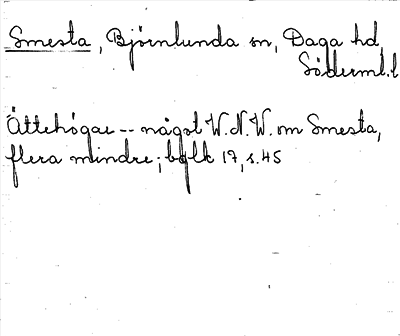 Smesta, Björnlunda sn, Daga hd,
Söderml. l
Ättehögar -- något V.N.V. om Smesta,
flera mindre; bglk 17, s. 45